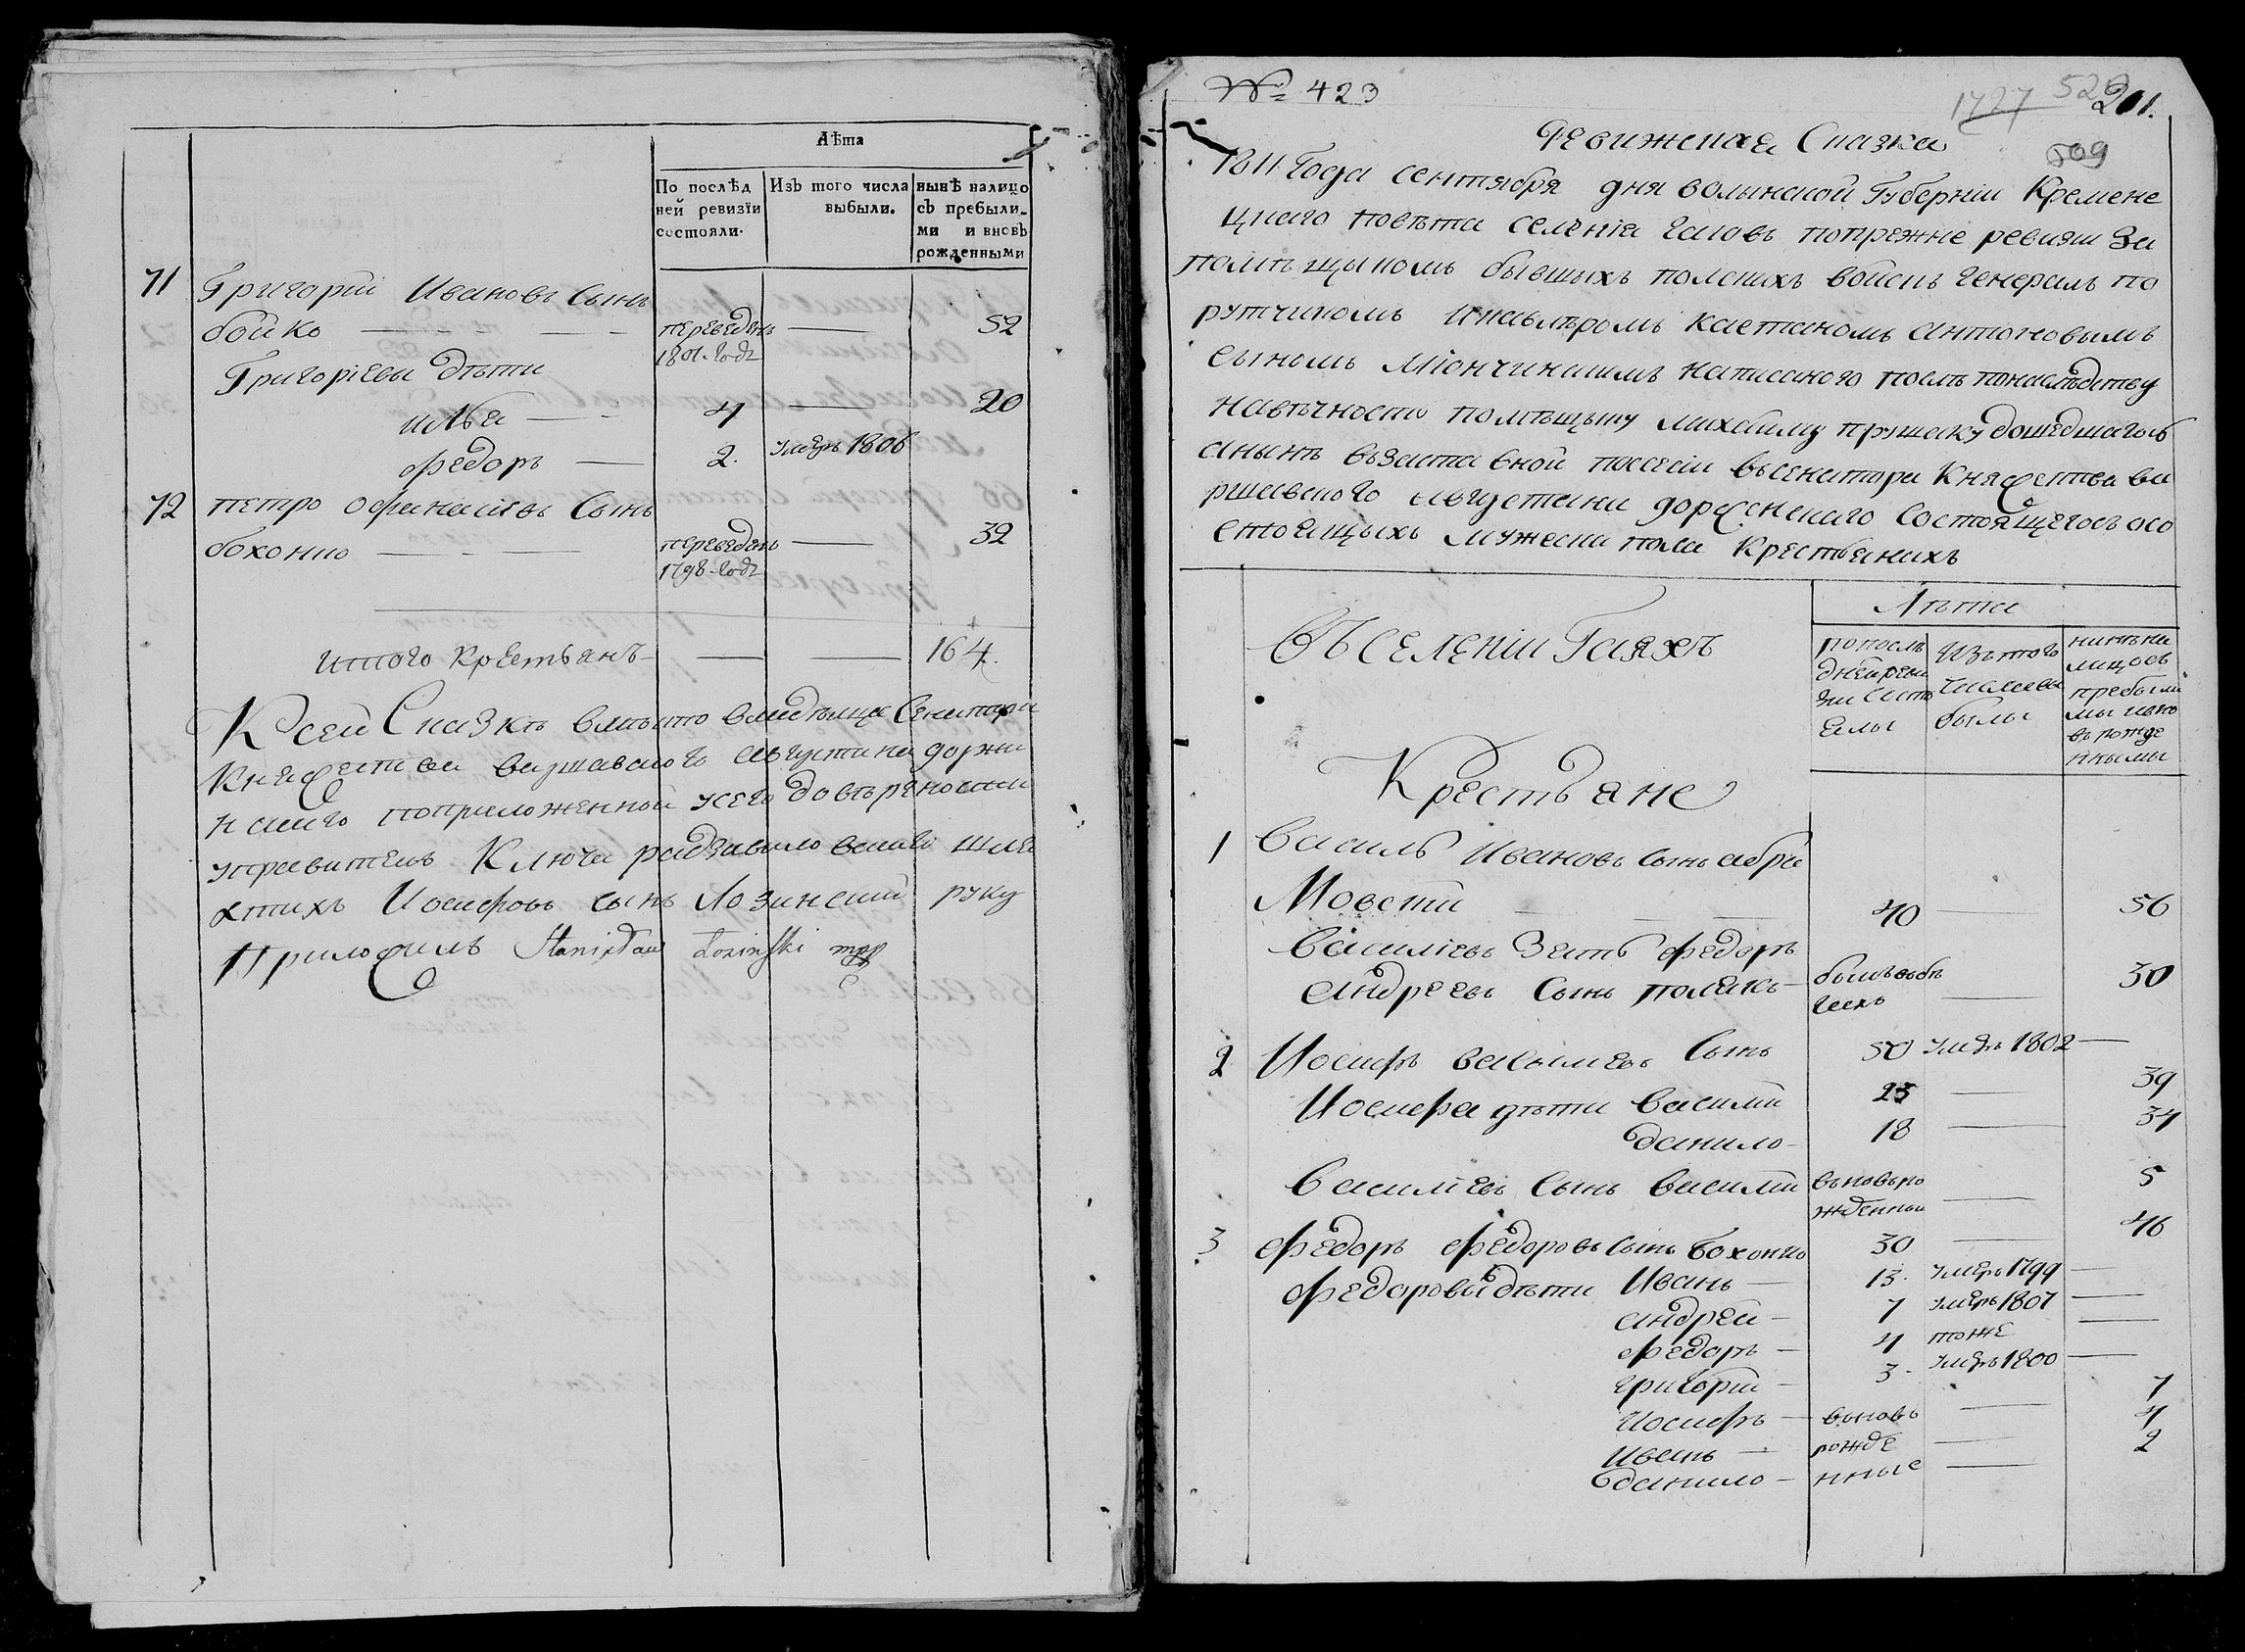 Лѣта
По послѣд Изъ того числа нынѣ налицо
ней ревизїи выбыли. съ прибыли-
состояли. ми и вновь
рожденными
71 Григорій Ивановъ Сынъ
бойко — переведенъ — 52
1801. Годѣ
Григоріевы дѣти
илья — 4 — 20
Федоръ — 2. умеръ 1806
72 петро Офанасіевъ Сынъ
бохонко — переведенъ — 32
1798. Годѣ
итого Крестьянъ — — — 164.
К сей Сказкѣ вмѣсто владѣльца Сенатора
Княжества варшавского августина доржи
нского поприложенной усего довѣренности
управитель Ключа радзивиловского шля
хтичъ Иосифовъ сынъ Лозинский руку
Приложилъ Stanisław Łoziński mpp
№ 423
1727 529 201.
509
Ревижская Сказка
1811 Года сентября дня волынской Губерніи Кремене
цкого повѣта селенія Гаювъ попрежне ревизіи за
помѣщикомъ бывшихъ полскихъ войскъ генералъ по
рутчикомъ икавалѣромъ каетаномъ антоновымъ
сыномъ Міончинскимъ написаного послѣ понаслѣдству
навѣчность помѣщику михайлу прушаку дошедшагось
анынѣ взаставной посессіи всенатора Княжества ва
ршавского августина доржснского Состоящегось осо
стоящыхъ мужеска пола Крестьянихъ
Лѣта
Въ Селеніи Гаяхъ
попослѣ изътого нинѣна
дней реви числавы лицосъ
зіи состо былы прибыли
ялы мы ивно
въ рожде
нными
Крестьяне
1 Василь Ивановъ сынъ абра
Мовскій — 40 — 56
Василіевъ Зять Федоръ
андреевъ Сынъ полякъ — былъвобѣ — 30
гахъ
2 Иосифъ васылиевъ Сынъ 50 умеръ 1802 —
Иосифа дѣти василий 23 — 39
данило — 18 — 34
Василіевъ Сынъ василій вновьро — 5
жденный
3 Федоръ Федоровъ Сынъ Бохонко 30 — 46
Федоровы дѣти Иванъ — 13. умеръ 1799 —
андрей — 7 умеръ 1807 —
Федоръ — 4 тоже —
григорій — 3. умеръ 1800 —
Иосифъ — вновь — 7
Иванъ — рожде — 4
данило — нные — 2